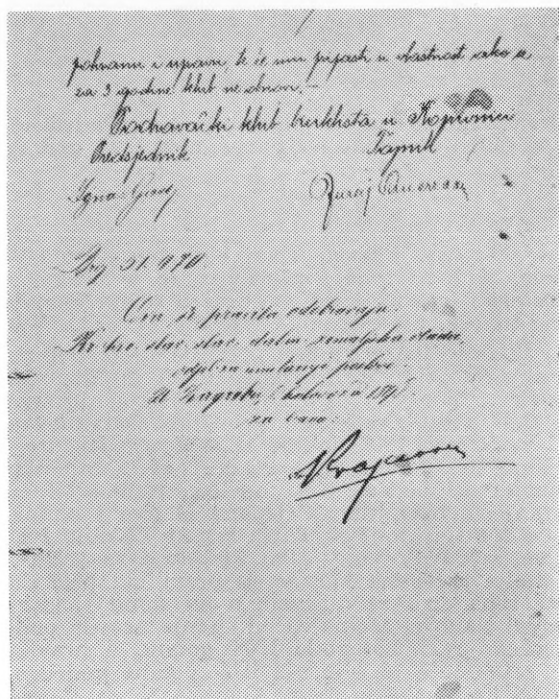 pohranu i upravu, te će mu pripasti u vlastnost ako se
za 3 godine klub ne obnovi. —
Podravački klub biciklista u Koprivnici
Predsjednik Tajnik
Broj 21.970.
Ova se pravila odobravaju.
Kr. hrv. slav. dalm. zemaljska vlada,
odjel za unutarnje poslove.
U Zagrebu, kolovoza
za bana: